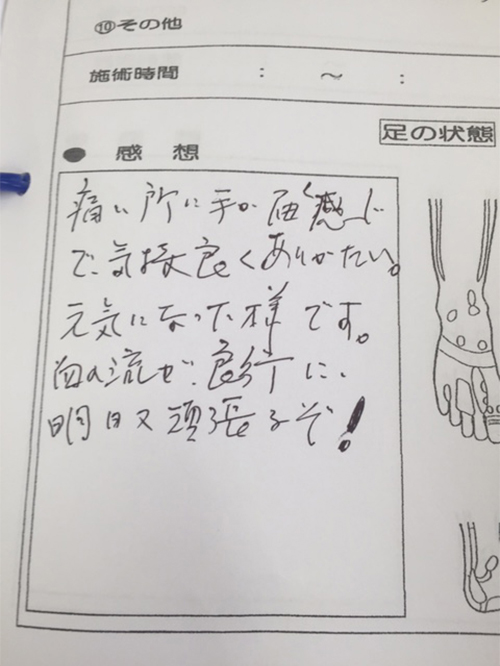 ⑩その他
施術時間 : ～ :
足の状態
● 感想
痛い所に手が届く感じ
で、気持良くありがたい。
元気になった様です。
血の流が、良行に、
明日又頑張るぞ!